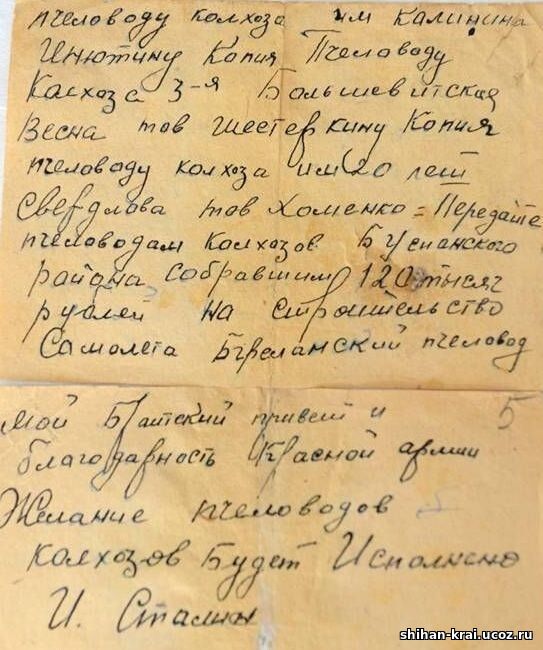 пчеловоду колхоза им Калинина
Инютину Копия Пчеловоду
Колхоза 3-я Большевитская
Весна тов Шестеркину Копия
пчеловоду колхоза им 20 лет
Свердлова тов Хоменко = Передайте
пчеловодам колхозов
района собравшим 120 тысяч
рублей на строительство
Самолета пчеловод
мой Братский привет и 5
благодарность Красной армии
Желание пчеловодов
колхозов Будет Исполнено
И. Сталин
shihan-krai.ucoz.ru